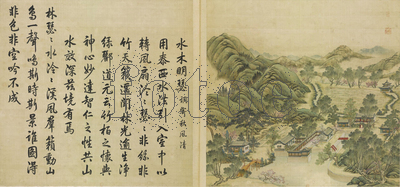 水木明瑟 調寄秋風清
用泰西水法引入室中以
轉風扇泠々瑟々非絲非
竹天籟遙聞林光逾生淨
綠酈道元云竹柏之懷與
神心妙達智仁之性共山
水效深茲境有焉
林瑟々水泠々溪風羣籟動山
鳥一聲鳴斯時斯景誰圖得
非色非空吟不成